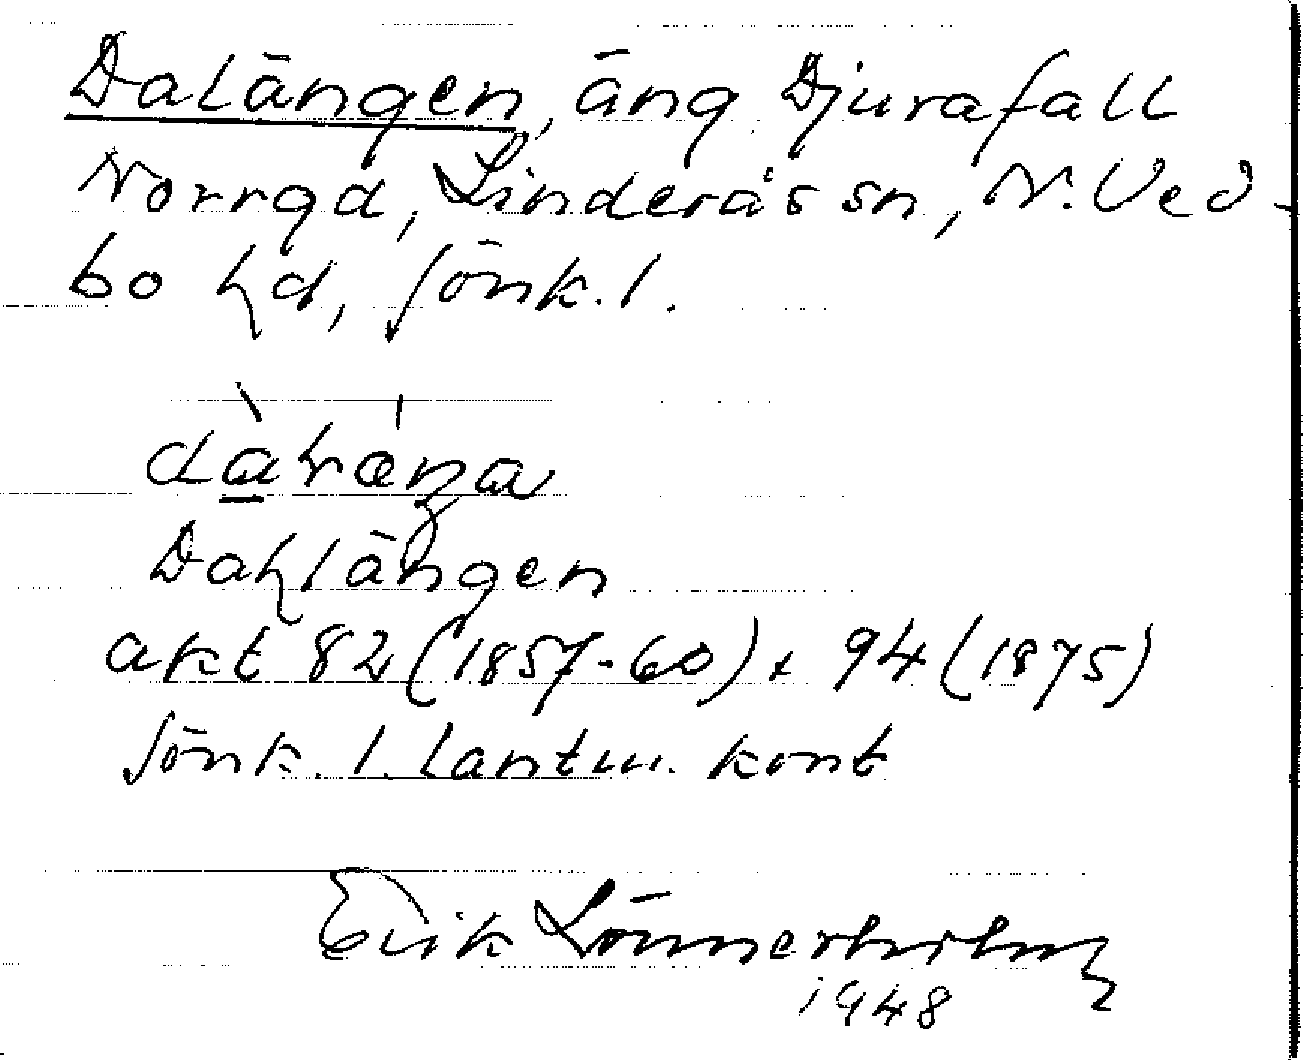 Dalängen, äng Djurafall
Norrgd, Linderås sn, N. Ved-
bo hd, Jönk. l.
Dahlängen
akt 82 (1857-60) + 94 (1875)
Jönk. l. Lantm. kont
Erik Lönnerholm
1948